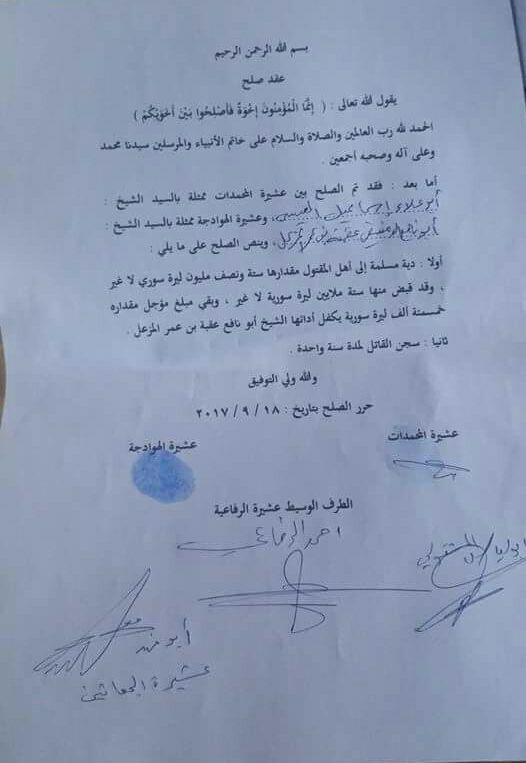 بسم الله الرحمن الرحيم
عقد صلح
يقول الله تعالى : ( إِنَّمَا الْمُؤْمِنُونَ إِخْوَةٌ فَأَصْلِحُوا بَيْنَ أَخَوَيْكُمْ )
الحمد لله رب العالمين والصلاة والسلام على خاتم الأنبياء والمرسلين سيدنا محمد
وعلى آله وصحبه أجمعين .
أما بعد : فقد تم الصلح بين عشيرة المحمدات ممثلة بالسيد الشيخ :
أبو علاء إسماعيل ، وعشيرة الهوادجة ممثلة بالسيد الشيخ :
أبو نافع ، وينص الصلح على ما يلي :
أولا : دية مسلمة إلى أهل المقتول مقدارها ستة ونصف مليون ليرة سوري لا غير
، وقد قبض منها ستة ملايين ليرة سورية لا غير ، وبقي مبلغ مؤجل مقداره
خمسمئة ألف ليرة سورية يكفل أدائها الشيخ أبو نافع عقبة بن عمر المزعل .
ثانيا : سجن القاتل لمدة سنة واحدة .
والله ولي التوفيق
حرر الصلح بتاريخ : ١٨ / ٩ / ٢٠١٧
عشيرة المحمدات
عشيرة الهوادجة
الطرف الوسيط عشيرة الرفاعية
احمد الرفاعي
أبو
عشيرة